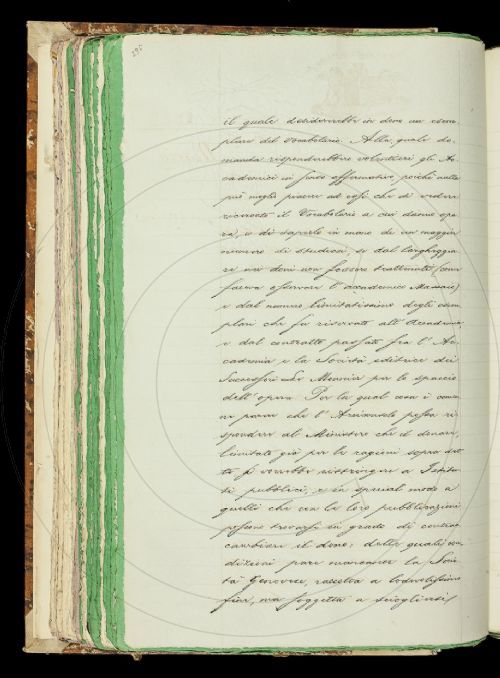 il quale desidererebbe in dono un esem-
plare del Vocabolario. Alla quale do-
manda risponderebbero volentieri gli Ac-
cademici in senso affermativo, poichè nulla
può meglio piacere ad essi che di vedere
ricercato il Vocabolario a cui danno ope-
ra, e di saperlo in mano di un maggior
numero di studiosi, se dal largheggia-
re nei doni non fossero trattenuti (come
faceva osservare l'Accademico Massaio)
e dal numero limitatissimo degli esem-
plari che fu riservato all'Accademia
e dal contratto passato fra l'Ac-
cademia e la Società editrice dei
Successori Le Monnier per lo spaccio
dell'opera. Per la qual cosa
parve che l'Arciconsolo possa ri-
spondere al Ministro che il donare,
limitato già per le ragioni sopra det-
te si vorrebbe restringere a Istitu-
ti pubblici, e in special modo a
quelli che con le loro pubblicazioni
possono trovarsi in grado di contrac-
cambiare il dono: dalle quali con-
dizioni pare mancante la Socie-
tà Genovese, raccolta a lodevolissimo
fine, ma soggetta a sciogliersi